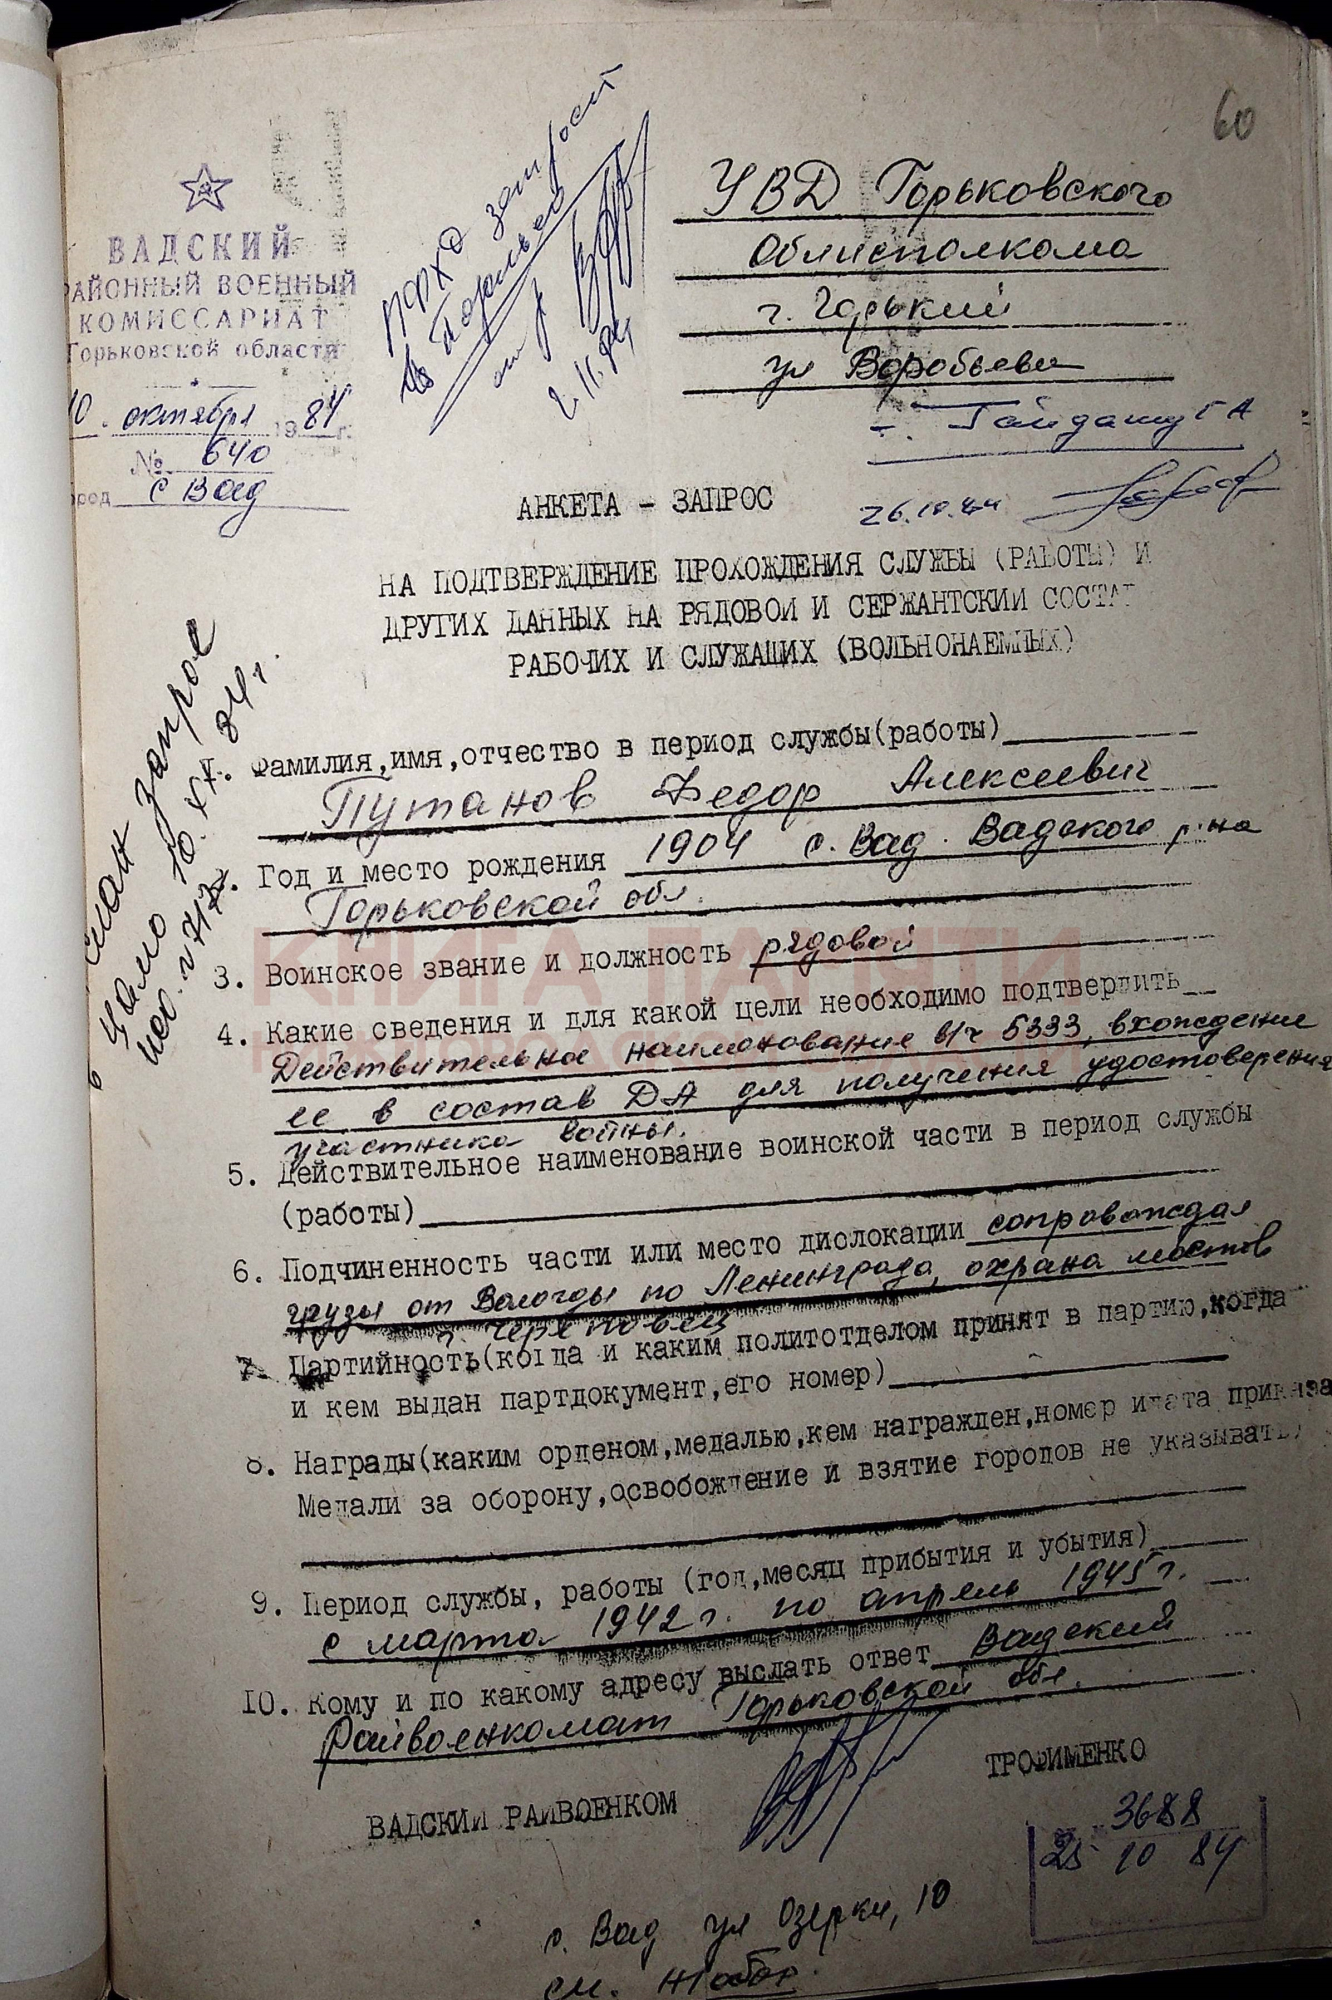 60
ВАДСКИЙ
РАЙОННЫЙ ВОЕННЫЙ
КОМИССАРИАТ
Горьковской области
10. октября 1984 г.
№ 640
ород с Вад
УВД Горьковского
Облисполкома
г. Горький
ул Воробьева
т. Гайдашу Г А
26.10.84
запрос
2.11.84
АНКЕТА - ЗАПРОС
НА ПОДТВЕРЖДЕНИЕ ПРОХОЖДЕНИЯ СЛУЖБЫ (РАБОТЫ) И
ДРУГИХ ДАННЫХ НА РЯДОВОЙ И СЕРЖАНТСКИЙ СОСТАВ
РАБОЧИХ И СЛУЖАЩИХ (ВОЛЬНОНАЕМНЫХ)
запрос
10. XI. 84 г.
1. Фамилия,имя,отчество в период службы(работы)
Путанов Федор Алексеевич
2. Год и место рождения 1904 с. Вад. Вадского р-на
Горьковской обл.
КНИГА ПАМЯТИ
3. Воинское звание и должность рядовой
4. Какие сведения и для какой цели необходимо подтвердить
Действительное наименование в/ч 5333, вхождение
ее в состав ДА для получения удостоверения
участника войны.
5. Действительное наименование воинской части в период службы
(работы)
6. Подчиненность части или место дислокации сопровождал
грузы от Вологды по Ленинграда, охрана мостов
г. Череповец
7. Партийность(когда и каким политотделом принят в партию,когда
и кем выдан партдокумент,его номер)
8. Награды(каким орденом,медалью,кем награжден,номер и дата приказа
Медали за оборону,освобождение и взятие городов не указывать)
9. Период службы, работы (год,месяц прибытия и убытия)
с марта 1942 г. по апрель 1945 г.
10. Кому и по какому адресу выслать ответ Вадский
Райвоенкомат Горьковской обл.
ВАДСКИЙ РАЙВОЕНКОМ
ТРОФИМЕНКО
3688
25 10 84
с. Вад ул Озерки, 10
см.